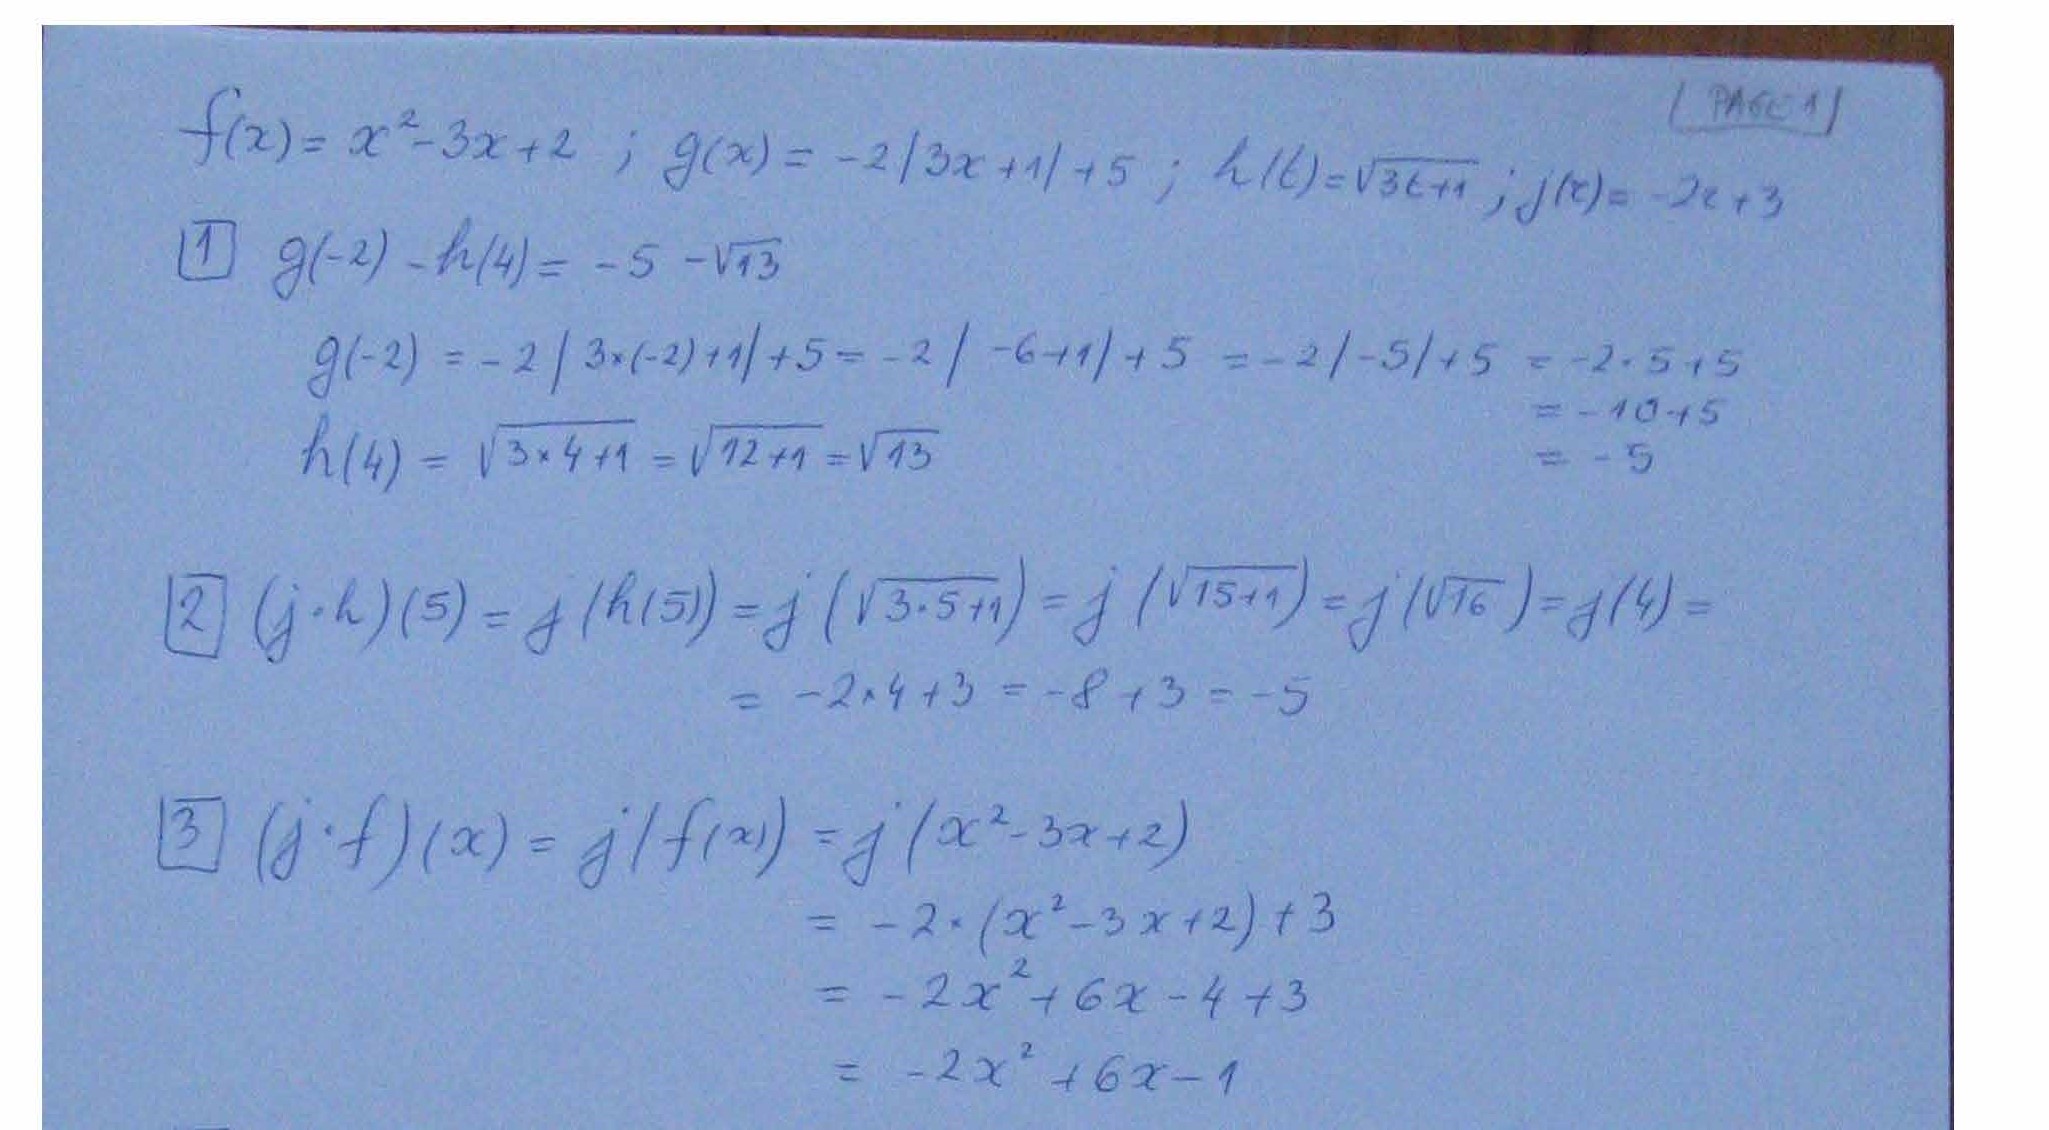 [PAGE 1]
f(x) = x² - 3x + 2 ; g(x) = -2|3x+1| + 5 ; h(t) = √(3t+1) ; j(x) = -2x + 3
1 g(-2) - h(4) = -5 - √13
g(-2) = -2|3×(-2)+1| + 5 = -2|-6+1| + 5 = -2|-5| + 5 = -2·5+5
= -10+5
h(4) = √(3×4+1) = √(12+1) = √13
= -5
2 (j·h)(5) = j(h(5)) = j(√(3·5+1)) = j(√(15+1)) = j(√16) = j(4) =
= -2×4+3 = -8+3 = -5
3 (j·f)(x) = j(f(x)) = j(x²-3x+2)
= -2·(x²-3x+2)+3
= -2x²+6x-4+3
= -2x²+6x-1